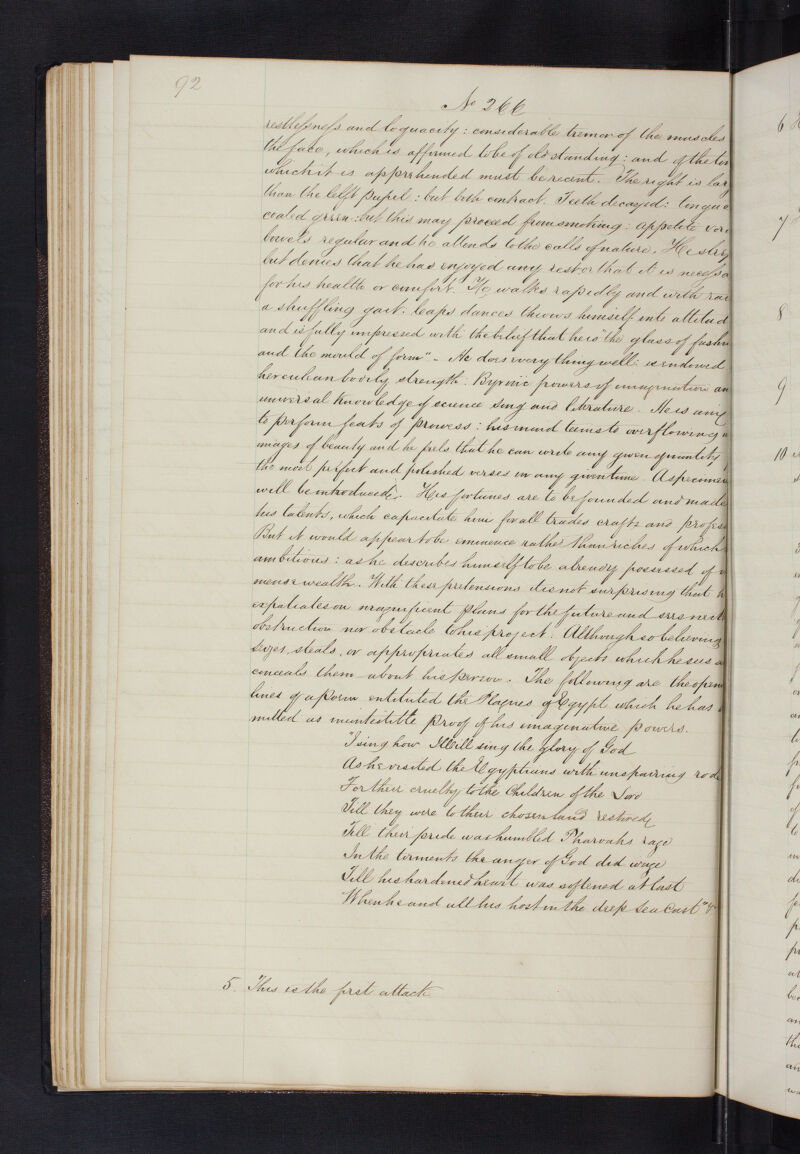 92
No 266
restlessness and loquacity: considerable tremor of the muscles
the face, which is affirmed to be of old standing: and of the ton
which it is apprehended must be recent. The right is lar
than the lelft pupil: but both contract. Teeth decayed: tongue
coated green: but this may proceed from smoking: appetite
bowels regular and he attends to the calls of nature. He sle
but denies that he has enjoyed any rest or that it is necessa
for his health or comfort. He walks rapidly and with
a shuffling gait: leaps dances throws himself into attitud
and is fully impressed with the belief that he is "the glass of fashi
and the mould of form" - He does every thing well: is endowed
herculean bodily strength: Byronic powers of imagination an
universal knowledge of science song and literature. He is
to perform feats of prowess: his mind teems to overflowing
images of beauty and he feels that he can write any given quantity
the most perfect and polished verses in any given time. A specimen
will be introduced. His fortunes are to be founded and made
his talents, which capacitate him for all trades crafts and profess
But it would appear to be eminence rather than riches of which
ambitious: as he describes himself to be already possessed of
mense wealth. With these pretensions it is not surprising that h
expatiates on magnificent plans for the future and sees neit
obstruction nor obstacle to his project. Although so believing
seizes, steals, or appropriates all small objects which he sees a
conceals them about his person. The following are the open
lines of a Poem entituted the Plagues of Egypt which he has
mitted as incontestible proof of his imaginative powers.
"I sing how I Will sing the glory of God
As he visited the Egyptians with unspairing rod
For their cruelty to the Children of the Lord
Till they were to their chosen land restored
Till their pride was humbled Pharoahs rage
In the torments the anger of God did wage
Till his hardened heart was softened at last
When he and all his host in the deep sea cast" &
5. This is the first attack